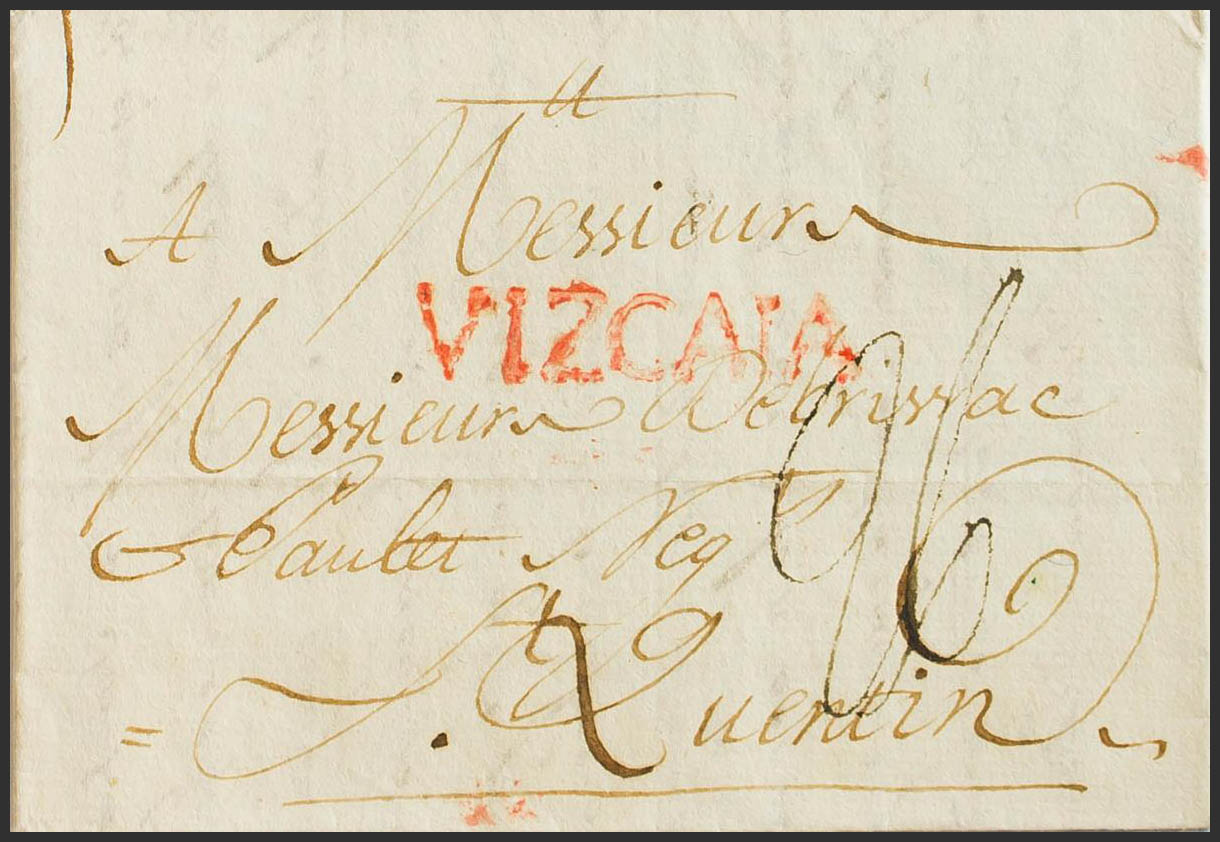 A Messieurs
VIZCAIA
Messieurs Debrissac
& Paulet Neg
St. Quentin